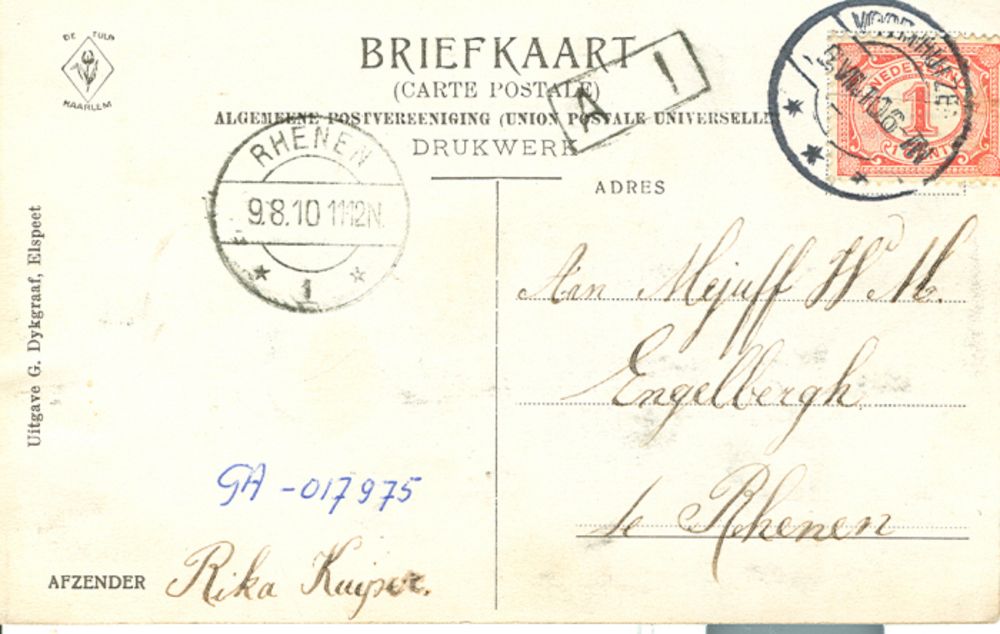 DE TULP
HAARLEM
BRIEFKAART
(CARTE POSTALE)
ALGEMEENE POSTVEREENIGING (UNION POSTALE UNIVERSELLE
DRUKWERK
A 1
NEDERLAND
1
1 CENT
RHENEN
9.8.10 11-12N.
1
ADRES
Aan Mejuff W M.
Engelbergh
te Rhenen
Uitgave G. Dykgraaf, Elspeet
GA-017975
AFZENDER Rika Kuiper.